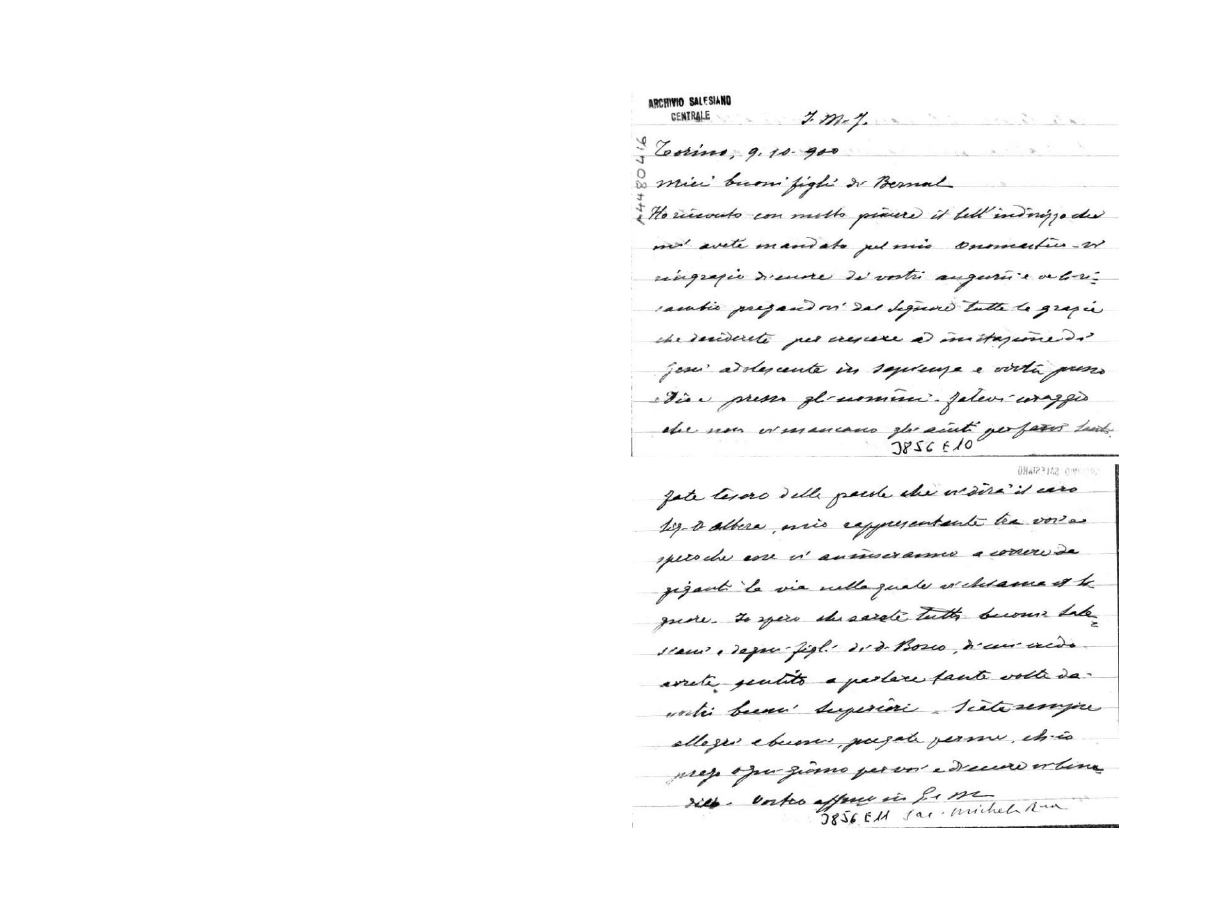 ARCHIVIO SALESIANO
CENTRALE
J. M. J.
A4480416
Torino, 9. 10. 900
Miei buoni figli di Bernal
Ho ricevuto con molto piacere il bell'indirizzo che
mi avete mandato pel mio Onomastico - vi
ringrazio di cuore dei vostri augurii e ve li ri=
cambio pregandovi dal Signore tutte le grazie
che desiderate per crescere ad imitazione di
Gesù adolescente in sapienza e virtù presso
Dio e presso gli uomini. Fatevi coraggio
che non vi mancano gli aiuti per farvi santi.
J856 E10
fate tesoro delle parole che vi dirà il caro
Sig. D. Albera, mio rappresentante tra voi e
spero che esse vi animeranno a correre da
giganti la via nella quale vi chiama il Si
gnore. Io spero che sarete tutti buoni Sale=
siani e degni figli di D. Bosco, di cui credo
avrete sentito a parlare tante volte da
vostri buoni Superiori. Siate sempre
allegri e buoni, pregate per me, ch'io
prego ogni giorno per voi e di cuore vi bene
dico. Vostro affmo in G. e M.
J856 E11 Sac. Michele Rua